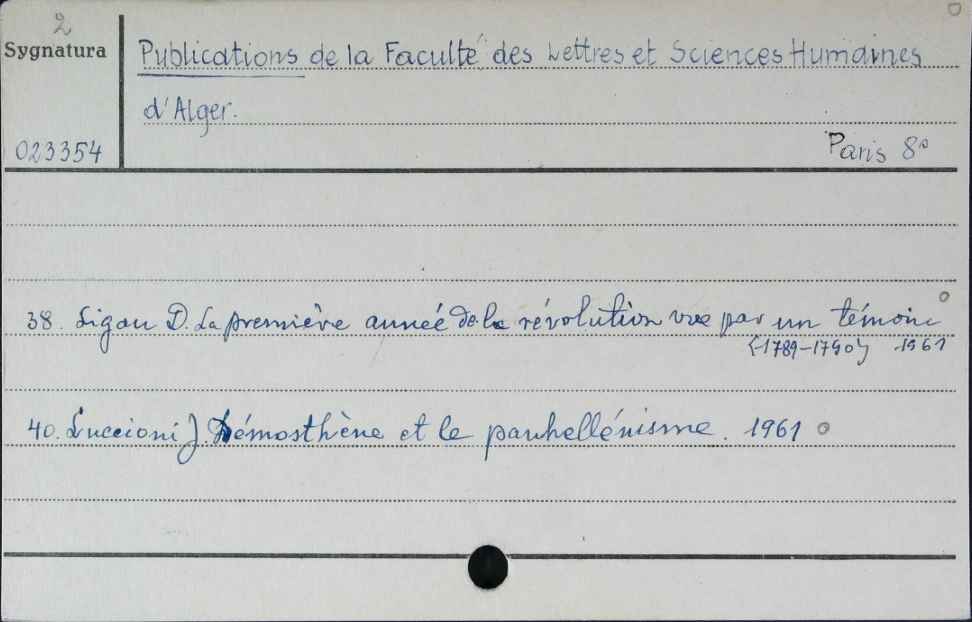 2
Sygnatura
Publications de la Faculté des Lettres et Sciences Humaines
d'Alger.
023354
Paris 8°
38. Ligou D. La première année de la révolution vue par un témoin
(1789-1790) 1961
40. Luccioni J. Démosthène et le panhellénisme. 1961